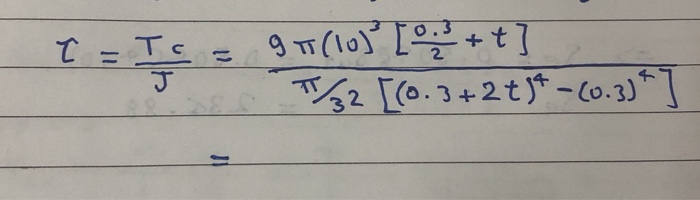 τ = Tc/J = 9π(10)³ [0.3/2 + t] / π/32 [(0.3 + 2t)⁴ - (0.3)⁴]
=